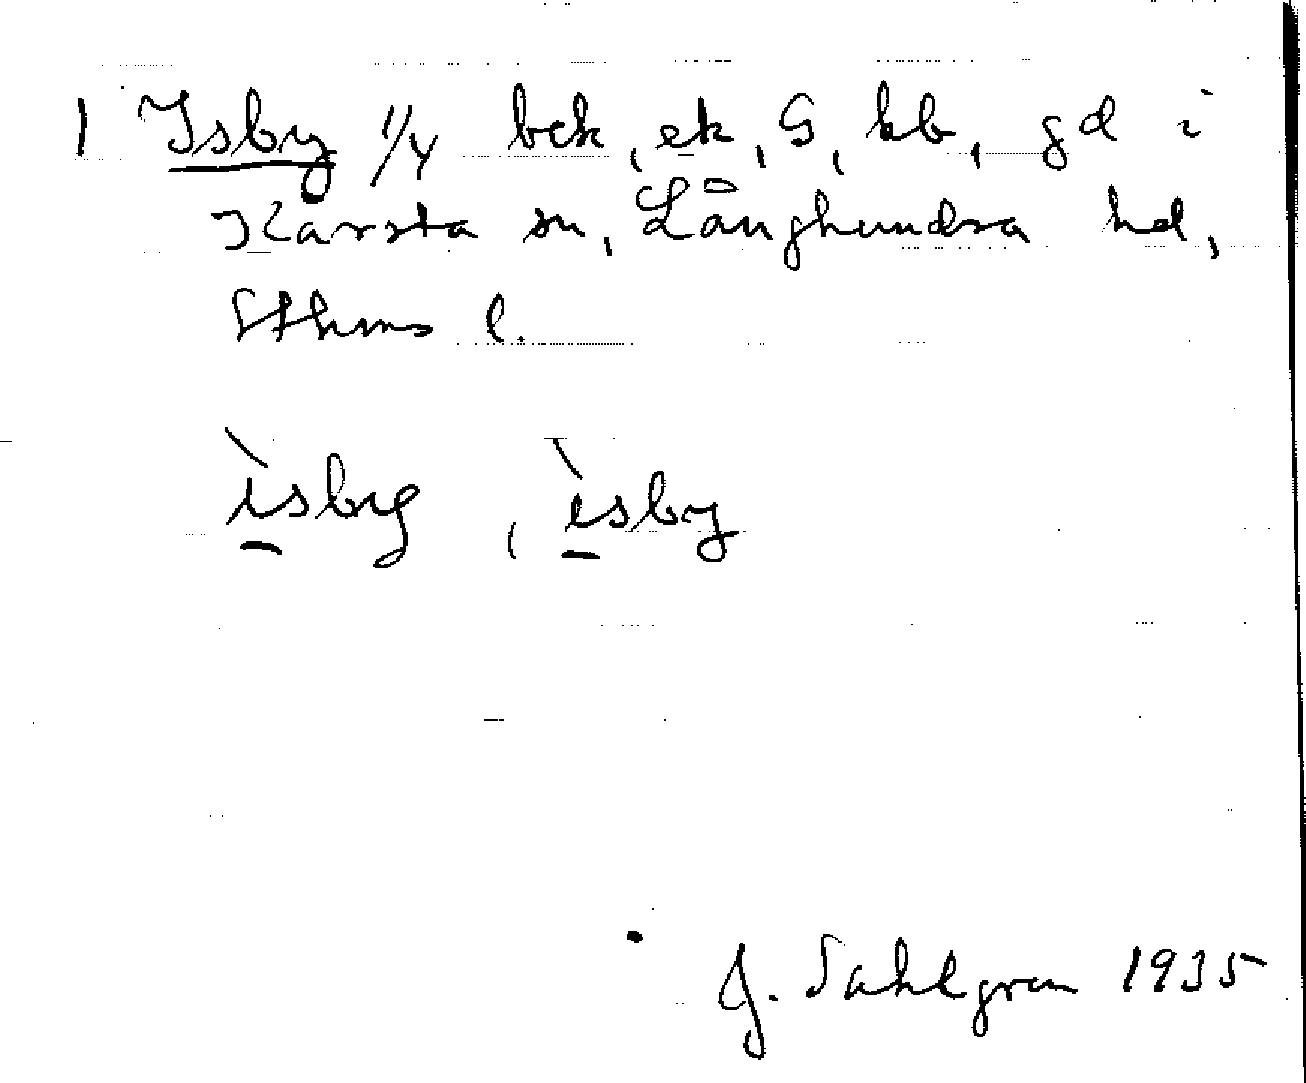 1 Isby 1/4 bek, ek, G, kb, gd i
Kårsta sn, Långhundra hd,
Sthms l.
ìsby, ìsby
J. Sahlgren 1935